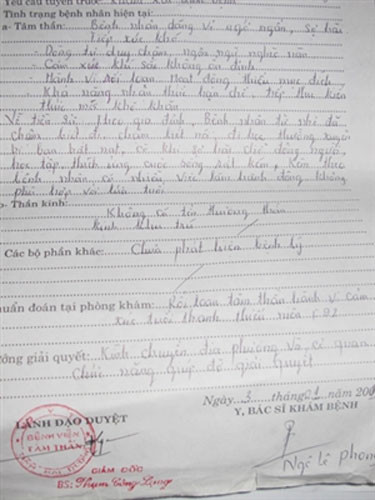 Yêu cầu tuyến trước: Khám xét bệnh
Tình trạng bệnh nhân hiện tại:
a- Tâm thần: Bệnh nhân dáng vẻ ngơ ngẩn, Sợ hãi
Tiếp xúc khó
- Dòng tư duy chậm, ngôn ngữ nghèo nàn
- Cảm xúc khí sắc không ổn định
- Hành vi rối loạn. Hoạt động thiếu mục đích
- Khả năng nhận thức hạn chế, tiếp thu kiến
thức mới khó khăn
Về tiền sử, theo gia đình, Bệnh nhân từ nhỏ đã
chậm biết đi, chậm biết nói, đi học thường xuyên
bị bạn bắt nạt, có khi sợ hãi chỗ đông người,
học tập, thích ứng cuộc sống rất kém, Kèm theo
bệnh nhân có nhiều việc làm hành động không
phù hợp với lứa tuổi
b- Thần kinh:
Không có tổn thương thần
kinh khu trú
Các bộ phận khác: Chưa phát hiện bệnh lý
chuẩn đoán tại phòng khám: Rối loạn tâm thần hành vi cảm
xúc tuổi thanh thiếu niên
ướng giải quyết: Kính chuyển địa phương và cơ quan
Chức năng giúp đỡ giải quyết
Ngày 3 tháng 01 năm 20
LÃNH ĐẠO DUYỆT
Y, BÁC SĨ KHÁM BỆNH
BỆNH VIỆN
TÂM THẦN
GIÁM ĐỐC
BS: Phạm Công
Ngô Lê Phong